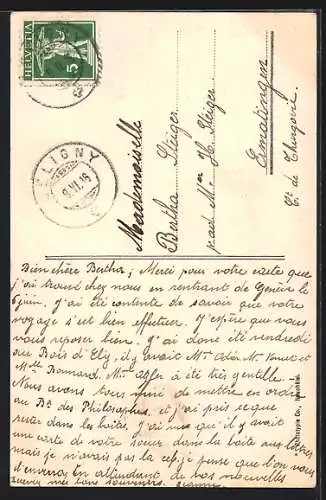 HELVETIA
5
LIGNY
9.VI.16
Mademoiselle
Bertha Steiger
H. Steiger
Ermatingen
Ct. de Thurgovie
Bien chère Bertha; Merci pour votre carte que
j'ai trouvé chez nous en rentrant de Genève le
6 juin. J'ai été contente de savoir que votre
voyage s'est bien effectuer. J'espère que vous
vous reposer bien. J'ai donc été vendredi
au Bois d'Ely, il y avait et
Mlle Bonnard. a été très gentille.
Nous avons tous muni de mettre en ordre
au Bd des Philosophes et j'ai pris ce que
rester dans les boites. J'ai mis que il y avait
une carte de votre soeur dans la boite aux lettres
mais je n'avais pas la clef, je pense que l'on vous
l'enverra, en attendant de vos nouvelles
recevez mes bons souvenirs.